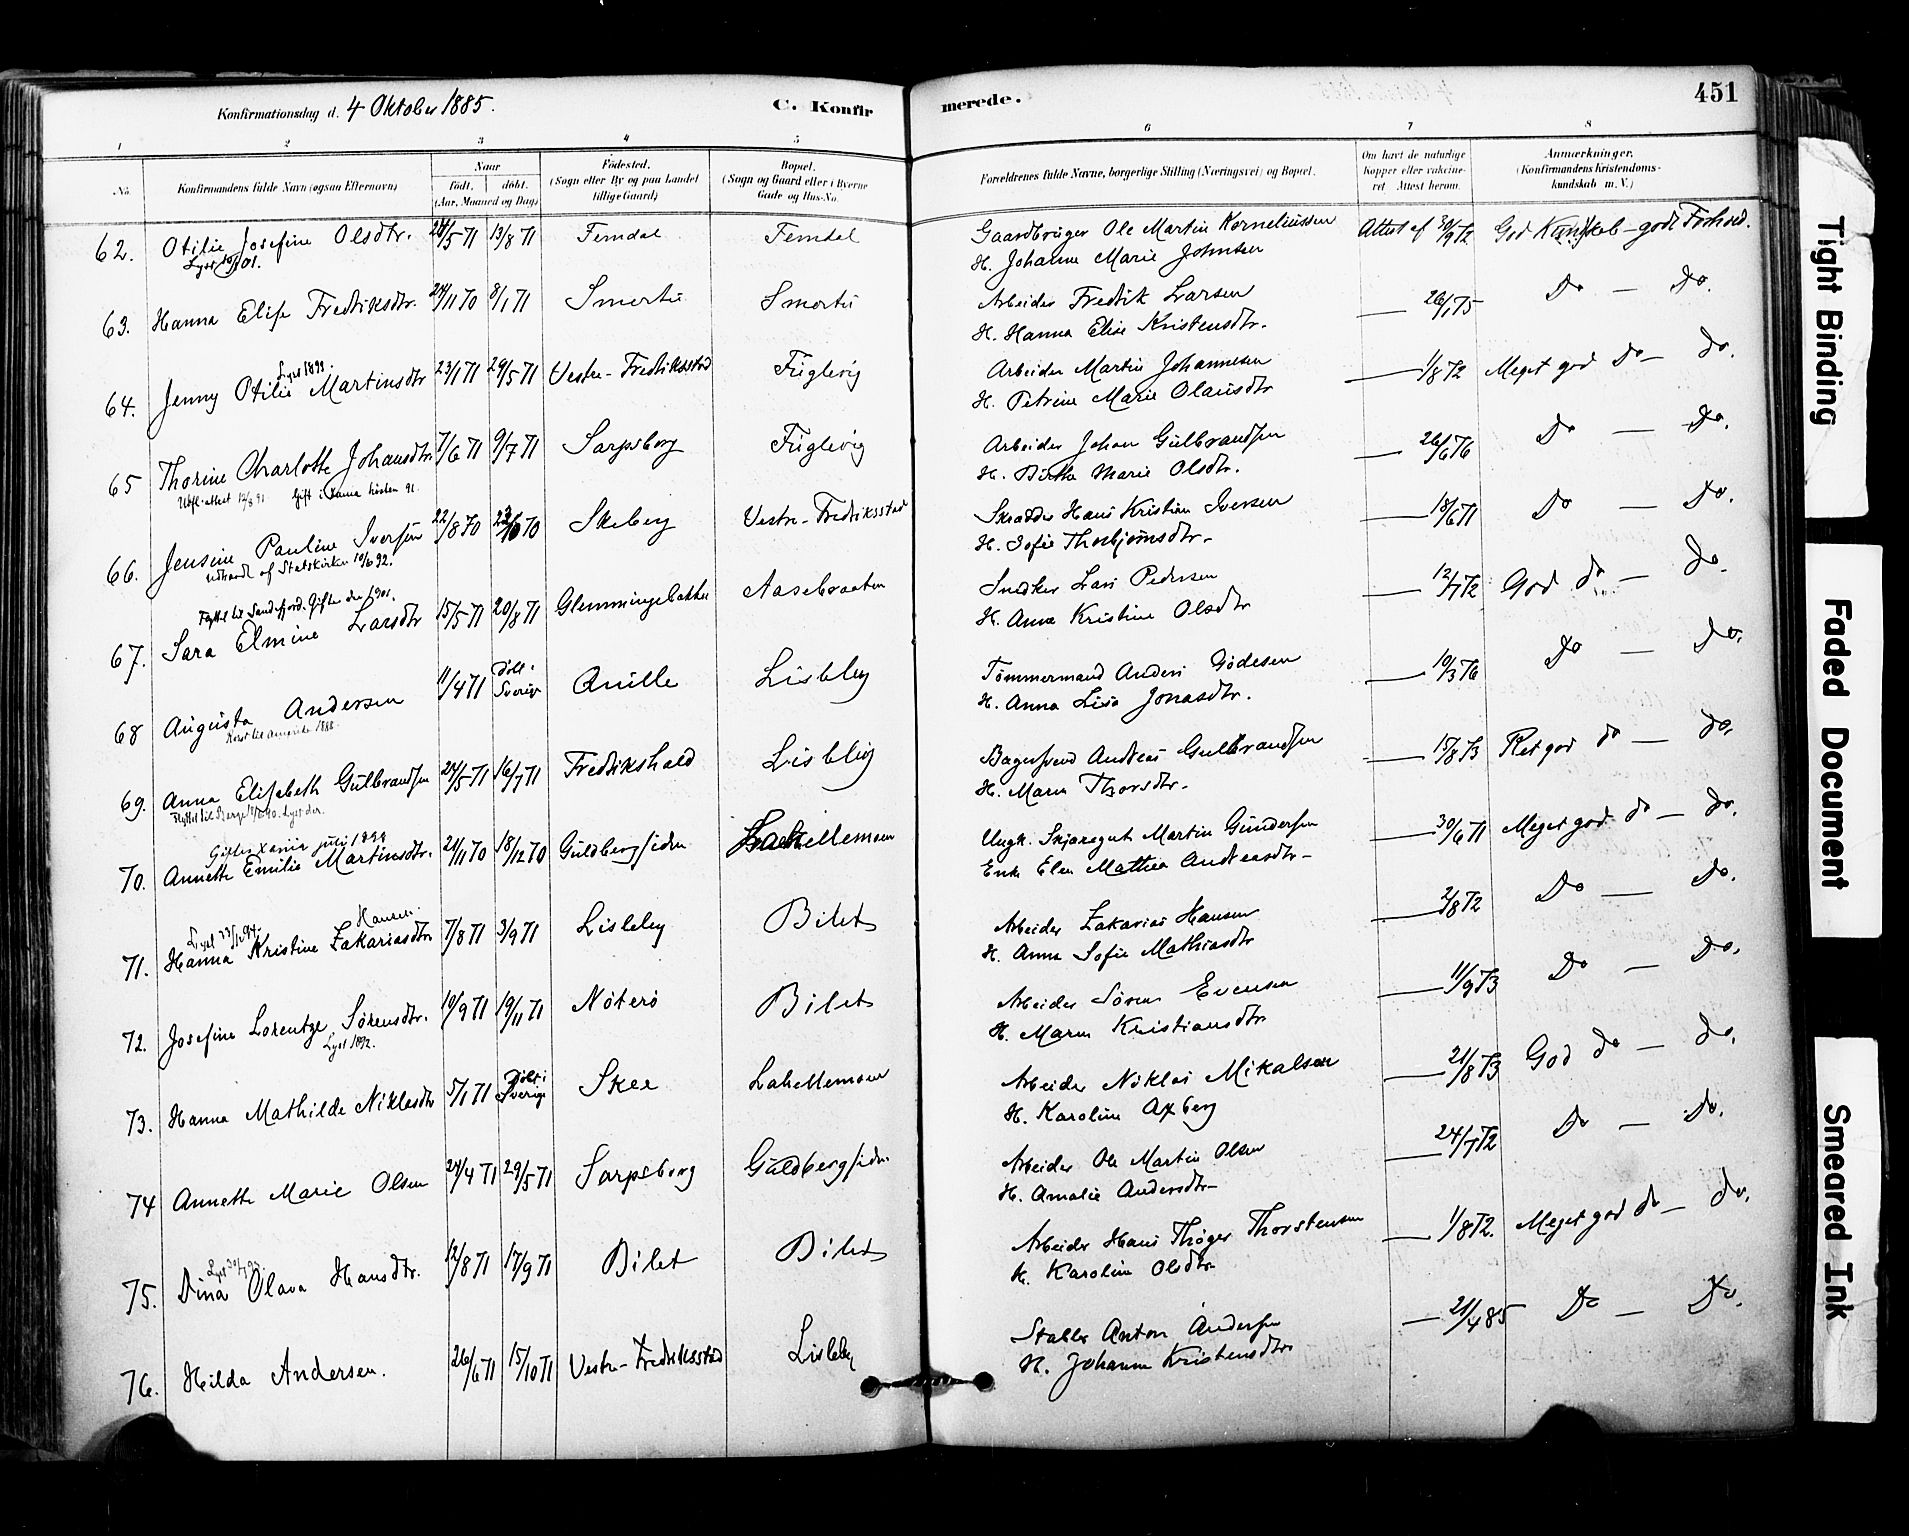 Konfirmationsdag d. 4 Oktober 1885.
C. Konfirmerede.
451
1 2 3 4 5 6 7 8
No.
Konfirmandens fulde Navn (ogsaa Efternavn)
Naar
født. døbt.
(Aar, Maaned og Dag)
Fødested.
(Sogn eller By og paa Landet
tillige Gaard)
Bopæl.
(Sogn og Gaard eller i Byerne
Gade og Hus-No.
Forældrenes fulde Navne, borgerlige Stilling (Næringsvei) og Bopæl.
Om havt de naturlige
Kopper eller vakcine-
ret Attest herom.
Anmærkninger.
(Konfirmandens Kristendoms-
kundskab m. V.)
62. Otilie Josefine Olsdtr. 24/5 71 13/8 71 Femdal Femdal Gaardbruger Ole Martin Korneliussen Attest af 30/9 72 God Kundskab – godt Forhold.
H. Johanne Marie Johnsen
63. Hanna Elise Fredriksdtr. 24/11 70 8/1 71 Smertu Smertu Arbeider Fredrik Larsen — 26/1 75 Do — Do.
H. Hanna Elise Kristensdtr.
Lyst 1899.
64. Jenny Otilie Martinsdtr 23/1 71 29/5 71 Vestre-Fredriksstad Fuglevig Arbeider Martin Johannesen — 1/8 72 Meget god Do — Do.
H. Petrine Marie Olausdtr
65 Thorine Charlotte Johansdtr. 7/6 71 9/7 71 Sarpsborg Fuglevig Arbeider Johan Gulbrandsen — 26/6 76 Do — Do.
Udfl. attest 12/8 91 Gift i Xania høsten 91. H. Birthe Marie Olsdtr.
66. Jensine Pauline Iversen 22/8 70 Skeberg Vestre-Fredriksstad Skrædder Hans Kristian Iversen — 18/6 71 Do — Do.
udtraadt af Statskirken 10/6 92. H. Sofie Thorbjørnsdtr.
Flyttet til Sandefjord. Giftes der 1901.
67. Sara Elmine Larsdtr 15/5 71 20/8 71 Glemmingebakke Aasebraaten Snedker Lars Pedersen — 12/7 72 God do — Do.
H. Anna Kristine Olsdtr
68 Augusta Andersen 11/4 71 Døbt i Sverige Quille Lisleby Tømmermand Anders Gødesen — 10/3 76 Do — Do.
Reist til Amerika 1888. H. Anna Lisa Jonasdtr.
69. Anna Elisabeth Gulbrandsen 24/5 71 16/7 71 Fredrikshald Lisleby Bagersvend Andreas Gulbrandsen — 15/8 73 Ret god do — Do.
H. Maren Thorsdtr.
Giftes Xania juli 1899
70. Annette Emilie Martinsdtr. 21/11 70 18/12 70 Guldbergsiden Lahellemoen Ungk. Skjæregut Martin Gundersen — 30/6 71 Meget god do — Do.
Enke Elen Mathea Andreasdtr –
Hansen.
71. Hanna Kristine Zakariasdtr 7/8 71 3/9 71 Lisleby Bilet Arbeider Zakarias Hansen — 2/8 72 Do — Do.
H. Anna Sofie Mathiasdtr
72. Josefine Lorentze Sørensdtr. 10/9 71 19/11 71 Nøterø Bilet Arbeider Søren Evensen — 11/9 73 Do — Do.
Lyst 1892. H. Maren Kristiansdtr
73. Hanna Mathilde Niklasdtr 5/1 71 Døbt i Sverige Skee Lahellemoen Arbeider Niklas Mikalsen — 21/8 73 God do — do.
H. Karoline Axberg
74 Annette Marie Olsen 24/4 71 29/5 71 Sarpsborg Guldbergsiden Arbeider Ole Martin Olsen — 24/7 72 Do — Do.
H. Amalie Andersdtr
75. Dina Olava Hansdtr. 12/8 71 17/9 71 Bilet Bilet Arbeider Hans Thøger Thorstensen — 1/8 72. Meget god do — do.
H. Karoline Olsdtr
76. Hilda Andersen. 26/6 71 15/10 71 Vestre-Fredriksstad Lisleby Stabler Anton Andersen — 21/4 85 Do — Do.
H. Johanne Kristensdtr
Tight Binding
Faded Document
Smeared Ink